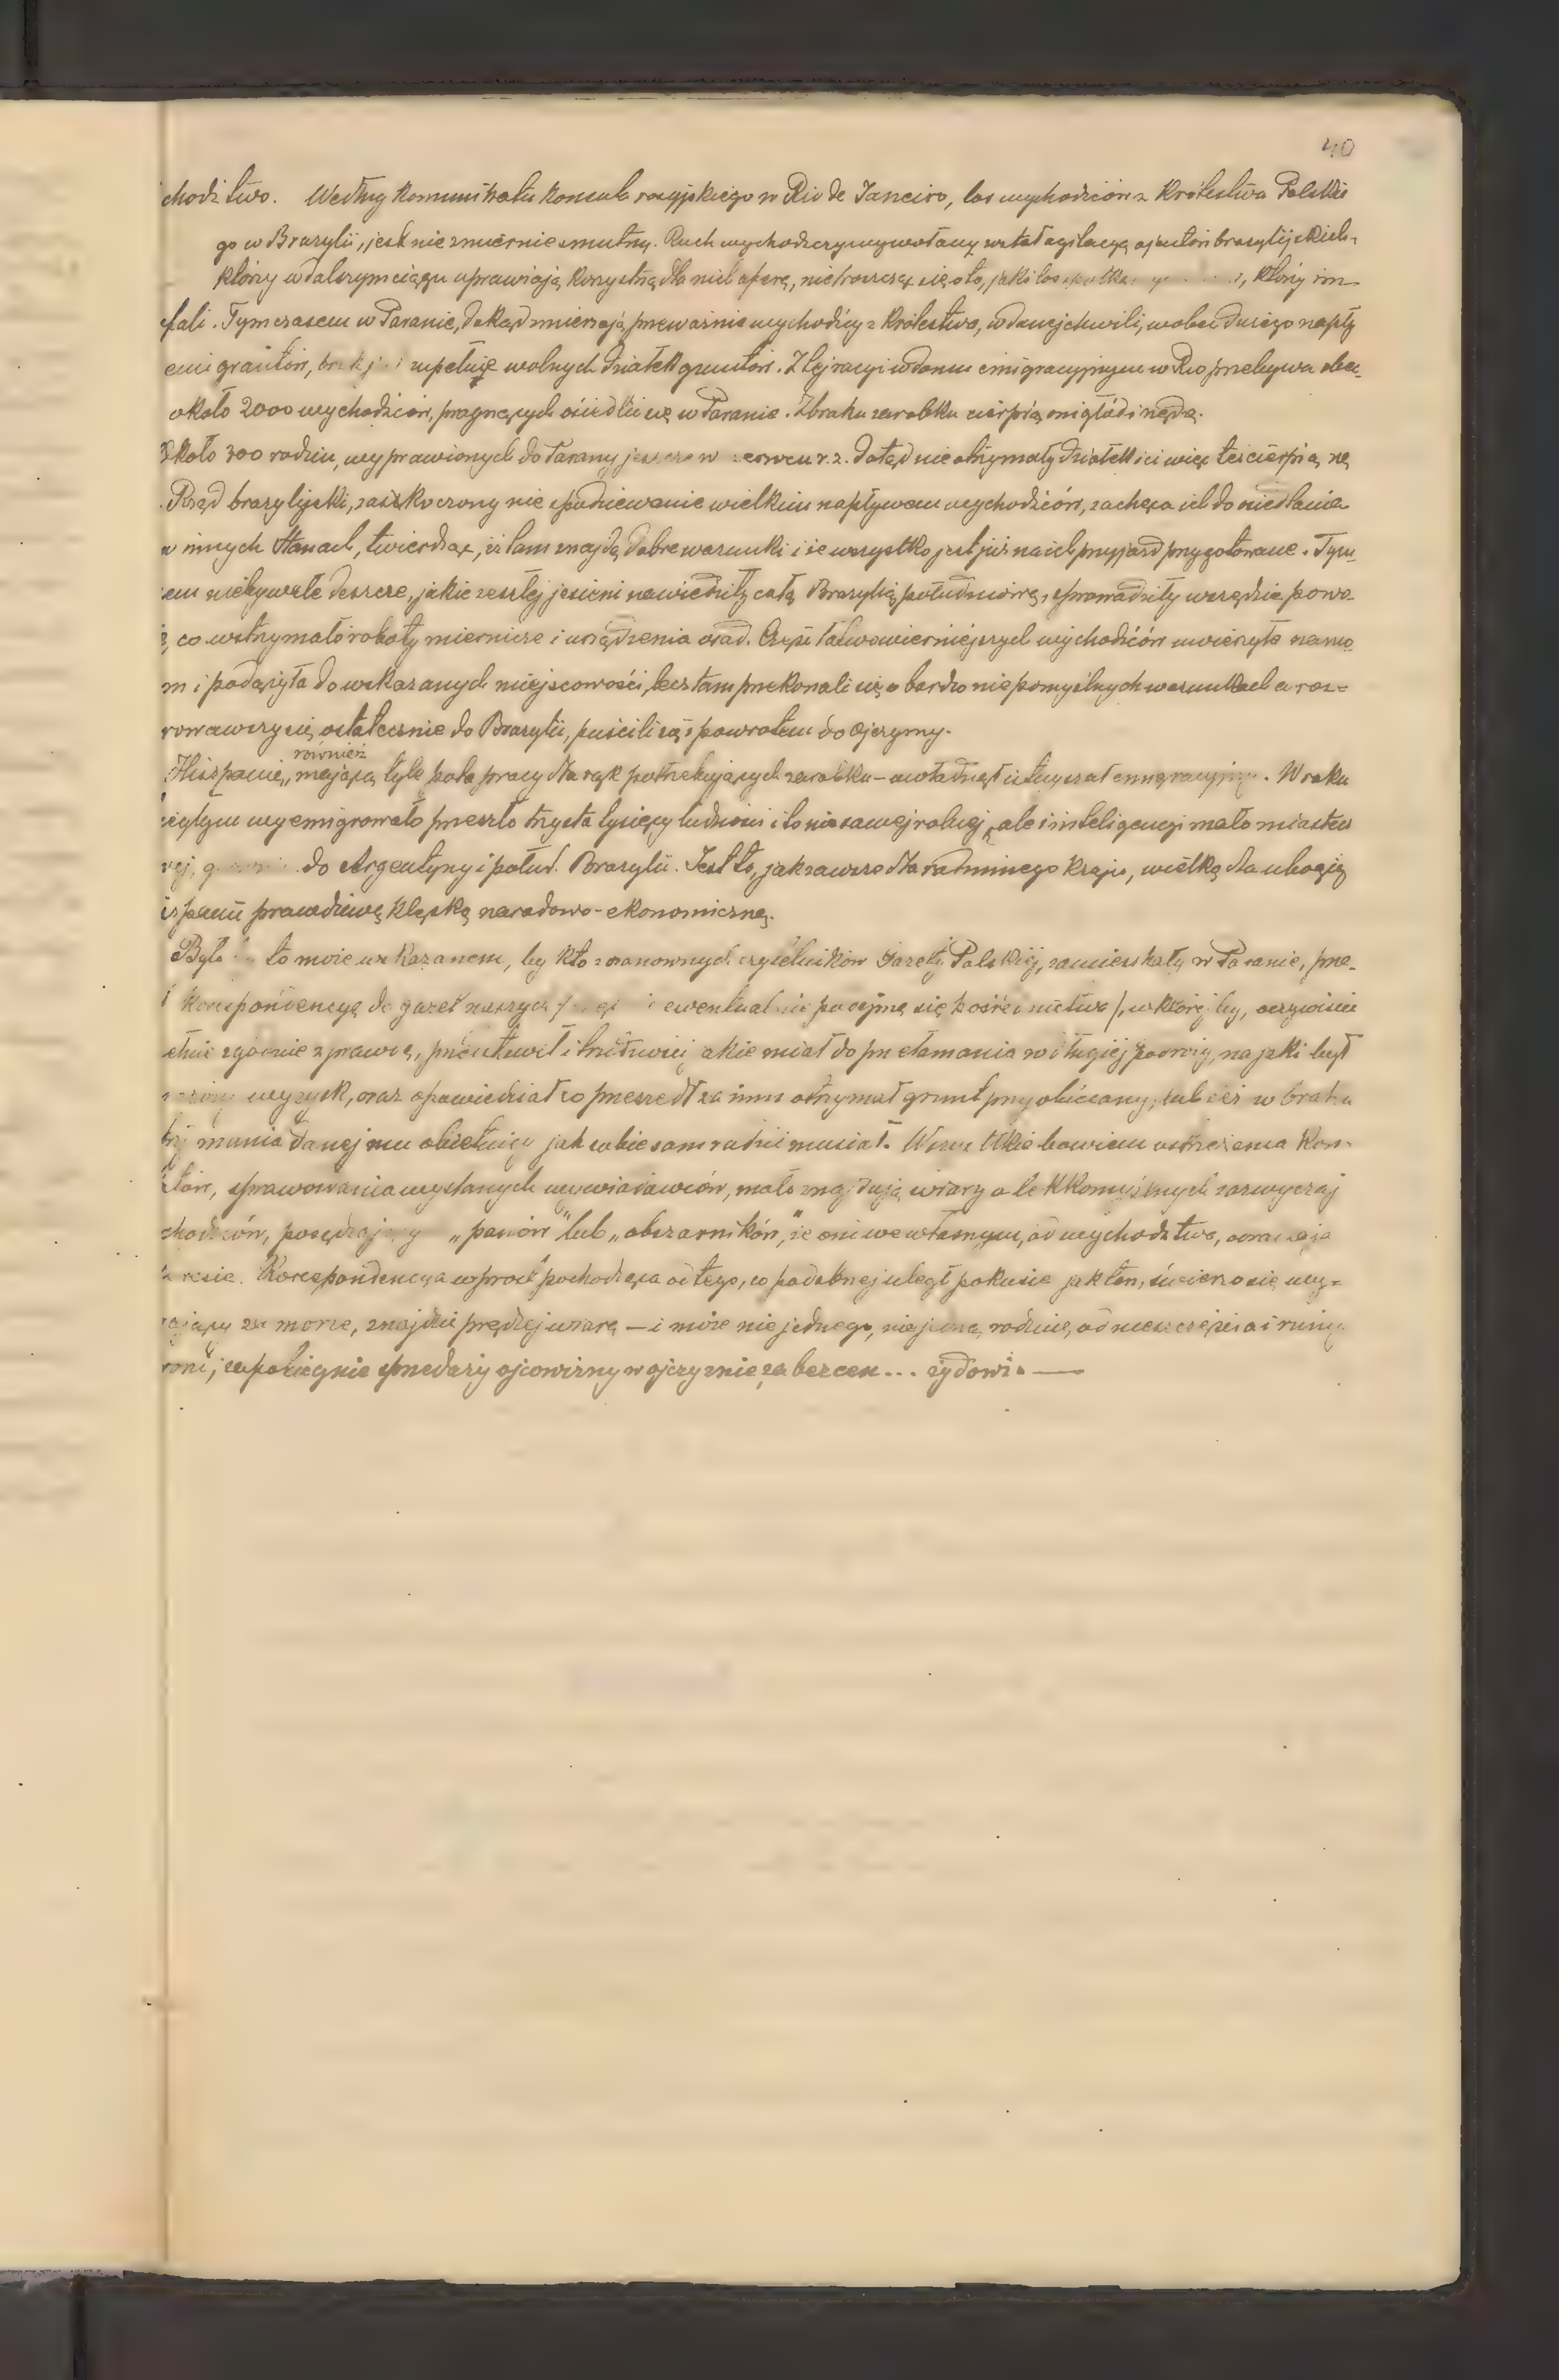 40
chodźtwo. Według Komunikatu Konsula rosyjskiego w Rio de Janeiro, los wychodźców z Królestwa Polskie
go w Brazylii, jest niezmiernie smutny. Ruch wychodźczy wywołany został agitacyą ajentów brazylijskich,
którzy w dalszym ciągu uprawiają korzystną dla nich aferę, nie troszcząc się o to, jaki los którzy im
fali. Tymczasem w Paranie, dokąd zmierzają przeważnie wychodźcy z Królestwa, w danej chwili, wobec dużego napły
emigrantów, zupełnie wolnych działek gruntów. Z tej racyi w domu emigracyjnym w Rio przebywa obec.
około 2000 wychodźców, pragnących osiedlić się w Paranie. Z braku zarobku cierpią oni głód i nędzę.
Około 300 rodzin, wyprawionych do Parany jeszcze w czerwcu r. z. dotąd nie otrzymały działek i ci więc też cierpią nę
Rząd brazylijski, zaskoczony niespodziewanie wielkim napływem wychodźców, zachęca ich do osiedlania
w innych Stanach, twierdząc, iż tam znajdą dobre warunki i że wszystko jest już na ich przyjazd przygotowane. Tym
em niebywałe deszcze, jakie zeszłej jesieni nawiedziły całą Brazylię południową, sprowadziły wszędzie powo-
ź, co wstrzymało roboty miernicze i urządzenia osad. Część łatwowierniejszych wychodźców uwierzyła namo
m i podążyła do wskazanych miejscowości, lecz tam przekonali się o bardzo niepomyślnych warunkach a roz=
rowawszy się ostatecznie do Brazylii, puścili się z powrotem do Ojczyzny.
Hiszpanię, również mającą tyle pola pracy dla rąk potrzebujących zarobku - owładnął iż tuż szał emigracyjny. W roku
eżłym wyemigrowało przeszło trzysta tysięcy ludności i to nie samej rolnej, ale i inteligencyi małomiastecz
ej, do Argentyny i połud. Brazylii. Jest to, jak zawsze dla rodzinnego kraju, wielką dla ubogiej
iszpanii prawdziwą klęską narodowo-ekonomiczną.
Było by to może wskazanem, by kto z szanownych czytelników Gazety Polskiej, zamieszkały w Paranie, prze-
ł korespondencyę do gazet naszych ewentualnie podejmę się pośrednictwa), w której by, oczywiście
etnie zgodnie z prawdą, przedstawił i trudności jakie miał do przełamania w długiej podróży, na jaki był
rażony wyzysk, oraz opowiedział co przeszedł za nim otrzymał grunt przyobiecany, lub też w braku
trzymania danej mu obietnicy jak sobie sam radzić musiał. Wszelkie bowiem ostrzeżenia Kon-
latów, sprawowania wysłanych wywiadowców, mało znajdują wiary a lekkomyślnych zazwyczaj
chodźców, posądzający „panów" lub „obszarników", że oni we własnym, od wychodźtwa, odradzają
teresie. Korespondencya wprost pochodząca od tego, co podobnej uległ pokusie jak ten, świeżo się wy-
rający za morze, znajdzie prędzej wiarę — i może nie jednego, nie jedną rodzinę, od nieszczęścia i ruiny
roni, zapobiegnie sprzedaży ojcowizny w ojczyznie za bezcen... żydowi. —